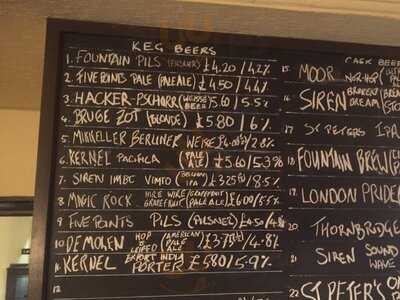 KEG BEERS
1. FOUNTAIN PILS (PILSNER) £4.20/4.2%
2. FIVE POINTS PALE (PALE ALE) £4.50/4.4%
3. HACKER-PSCHORR (WEISSE BEER) £5.60/5.5%
4. BRUGE ZOT (BLONDE) £5.80/6%
5. MIKKELLER BERLINER WEISSE /2.8%
6. KERNEL PACIFICA (PALE) £5.60/5.3%
7. SIREN IMBC VIMTO (BELGIAN IPA) /8.5%
8. MAGIC ROCK HIGH WIRE GRAPEFRUIT (GRAPEFRUIT PALE ALE) £6.00/5.5%
9. FIVE POINTS PILS (PILSNER) £4.50/
10 DE MOLEN HOP & (AMERICAN PALE ALE) /4.8%
11. KERNEL EXPORT INDIA PORTER £5.80/5.9%
12
CASK BEER
15. MOOR NOR'HOP
16 SIREN BROKEN DREAM
17 ST PETERS IPA
18 FOUNTAIN BREW
19. LONDON PRIDE
20 THORNBRIDGE
21 SIREN SOUND WAVE
22 ST PETER'S